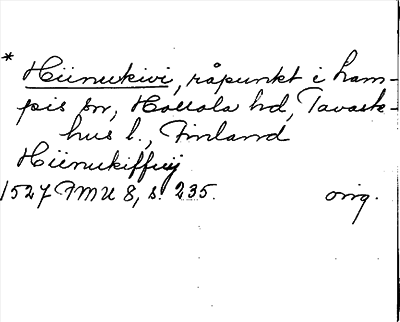 * Hiinukivi, råpunkt i Lam-
pis sn, Hollola hd, Tavast-
hus l., Finland
Hiinukiffuij
1527 FMU 8, s. 235. orig.